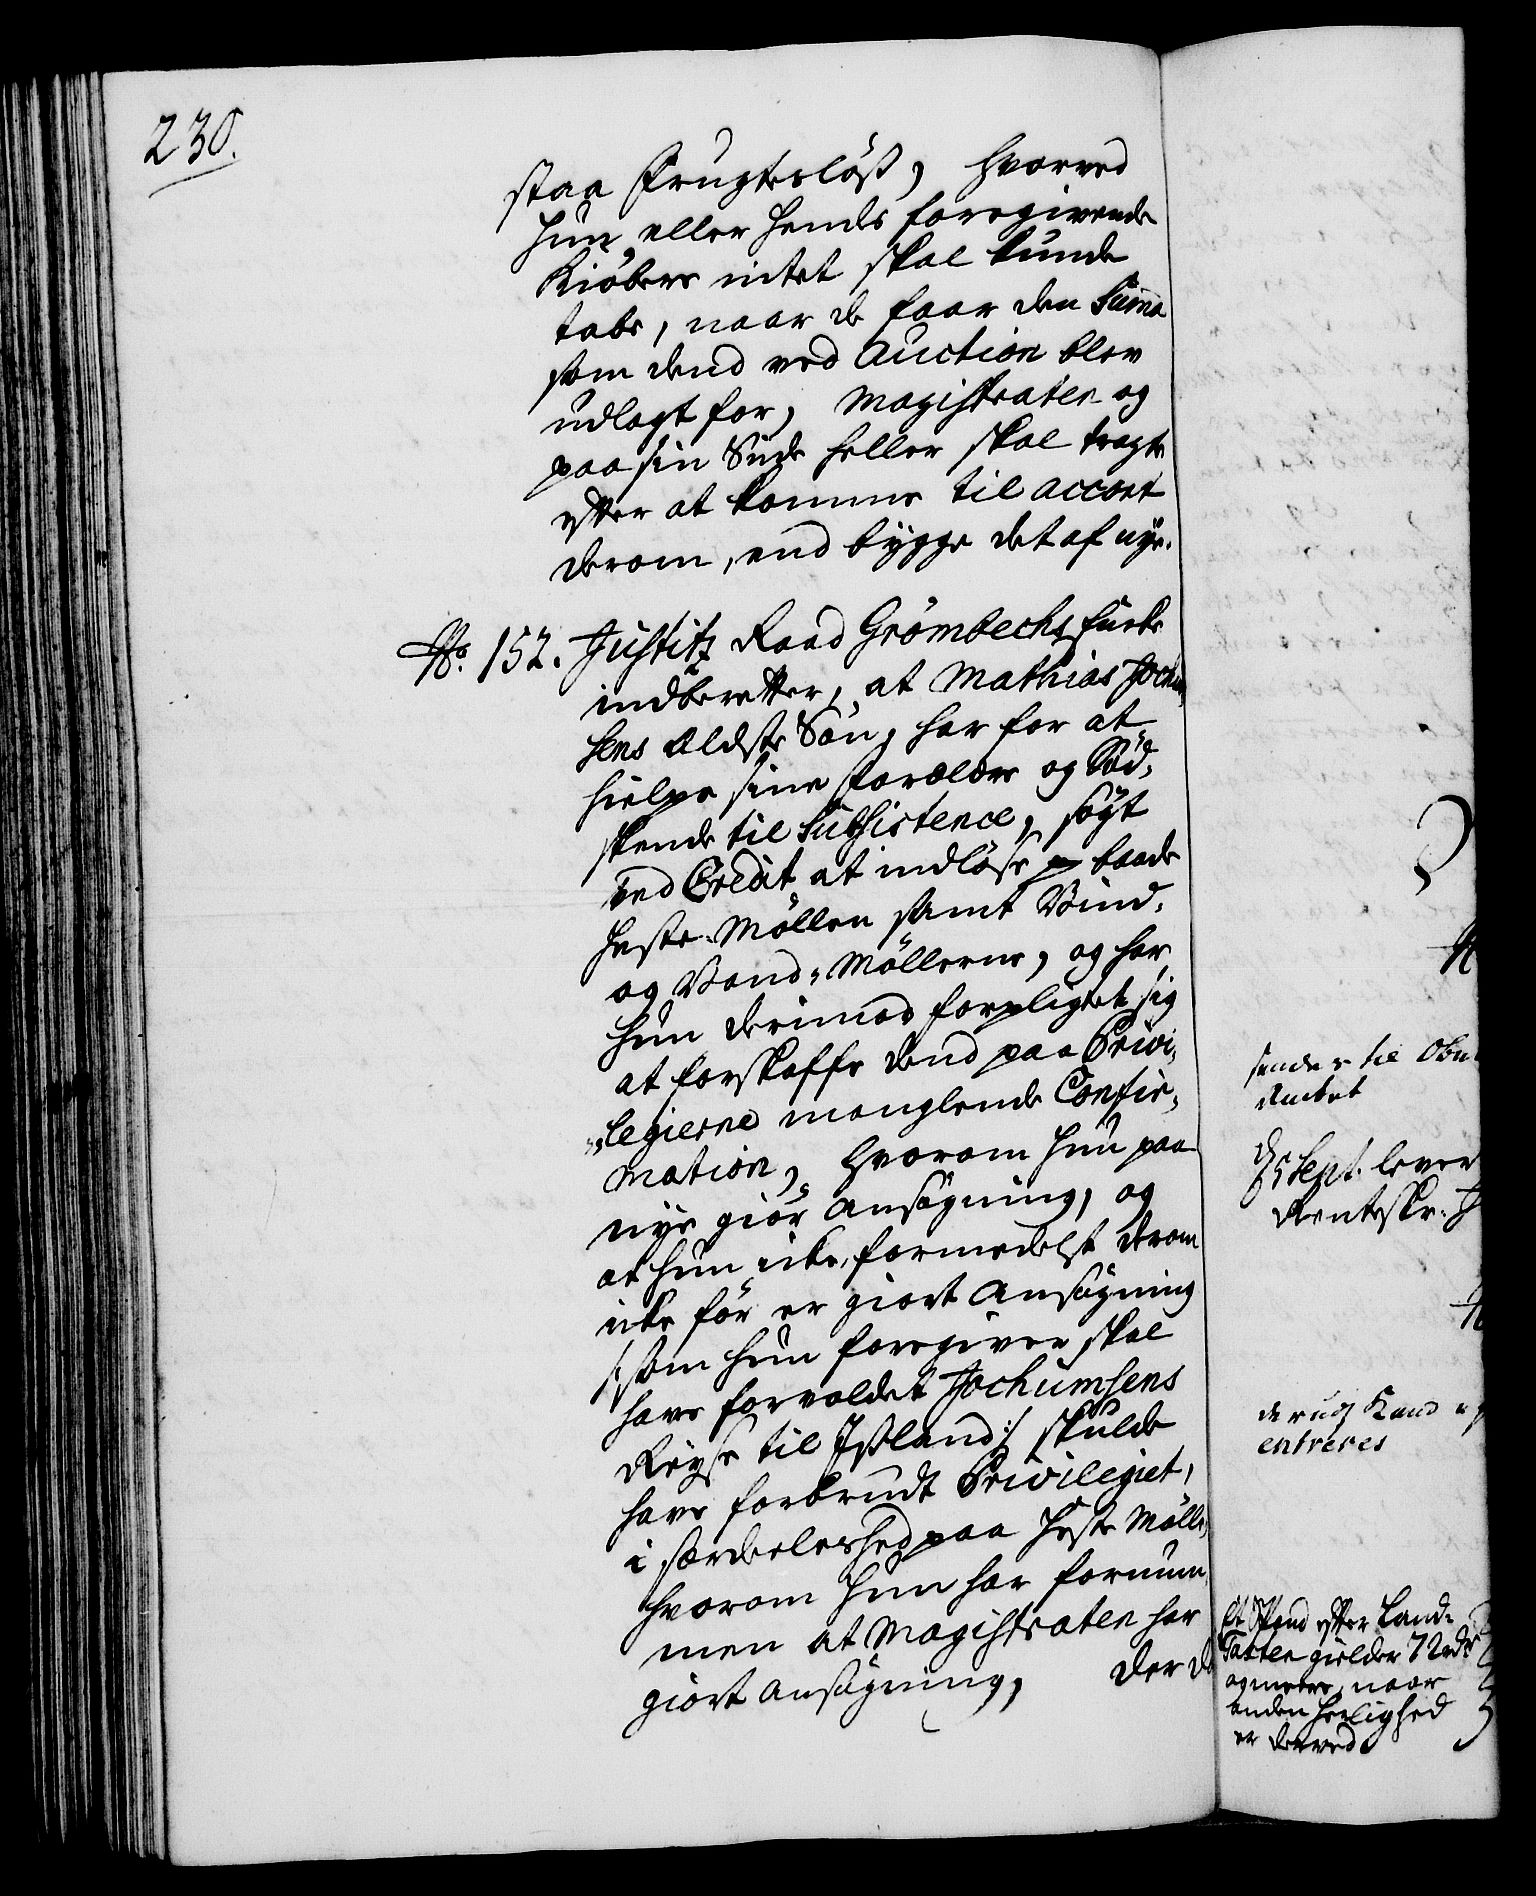 230.
staa Frugtesløst, hvorved
hun eller hendes foregivende
Kiøbere intet skal kunde
tabe, naar de faar den Summa
som dend ved Auction blev
udlagt for, Magistraten og
paa sin Side heller skal tragte
efter at komme til accort
derom, end bygge det af nye.
No. 152. Justitz Raad Grømbechs Encke
indberetter, at Mathias Jochum
sens Eldste Søn, har for at
hielpe sine Forældre og Sød,
skende til Subsistence, søgt
ved Credit at indløse baade
Heste-Møllen samt Vind-
og Vand-Møllerne, og har
hun derimod forpligtet sig
at forskaffe dend paa Privi,
legierne manglende Confir,
mation, hvorom hun paa
nye giør Ansøgning, og
at hun icke, formedelst derom
icke før er giort Ansøgning
/:som hun foregiver skal
have forvoldet Jochumsens
Reyse til Ißland:/ skulde
have forbrudt Privilegiet,
i særdeleshed paa Heste Mølle,
hvorom hun har fornum,
men at Magistraten har
giort Ansøgning, der
sendes til
Amtet
Sept. lever
Rentskr.
entreres
efter Land-
Taxten gielder 72 rd
og meere, naar
anden herlighed
er derved